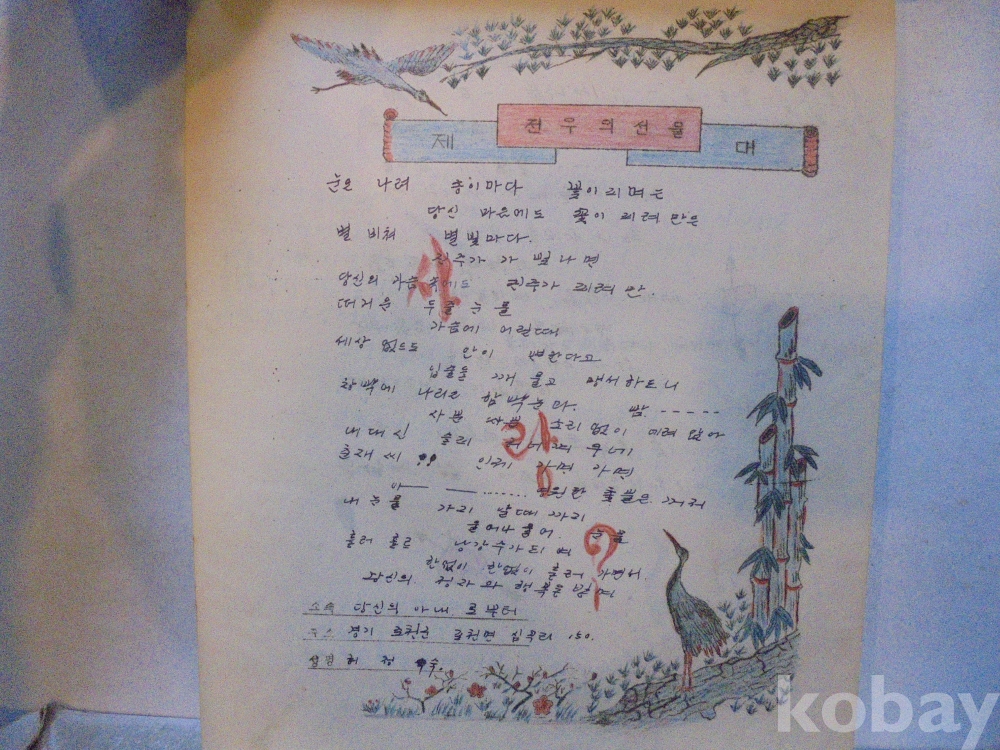 전우의 선물
제 대
눈은 나려 송이마다 꽃이 피며는
당신 마음에도 꽃이 피려만은
별 비쳐 별빛마다.
진주가 가 빛나면
당신의 가슴 속에도 진주가 되려만.
뜨거운 두줄 눈물
가슴에 어릴때
세상 없드도 안이 변한다고
입술을 깨물고 맹서하드니
창백에 나리는 함박눈아. 밤. -----
사뿐 사뿐 소리없이 내려 앉아
내 대신
춘재씨 !! 인제 가면 가면
아— — ....... 영원한 촛불은 꺼져
내 눈물
흘러 흘르 낭강수가 되여
한없이 한없이 흘러 가면서.
당신의. 행복을 빌며
사랑?!
소속 당신의 아내로부터
주소 경기 포천군 포천면 150.
성명 허 정 숙.
kobay